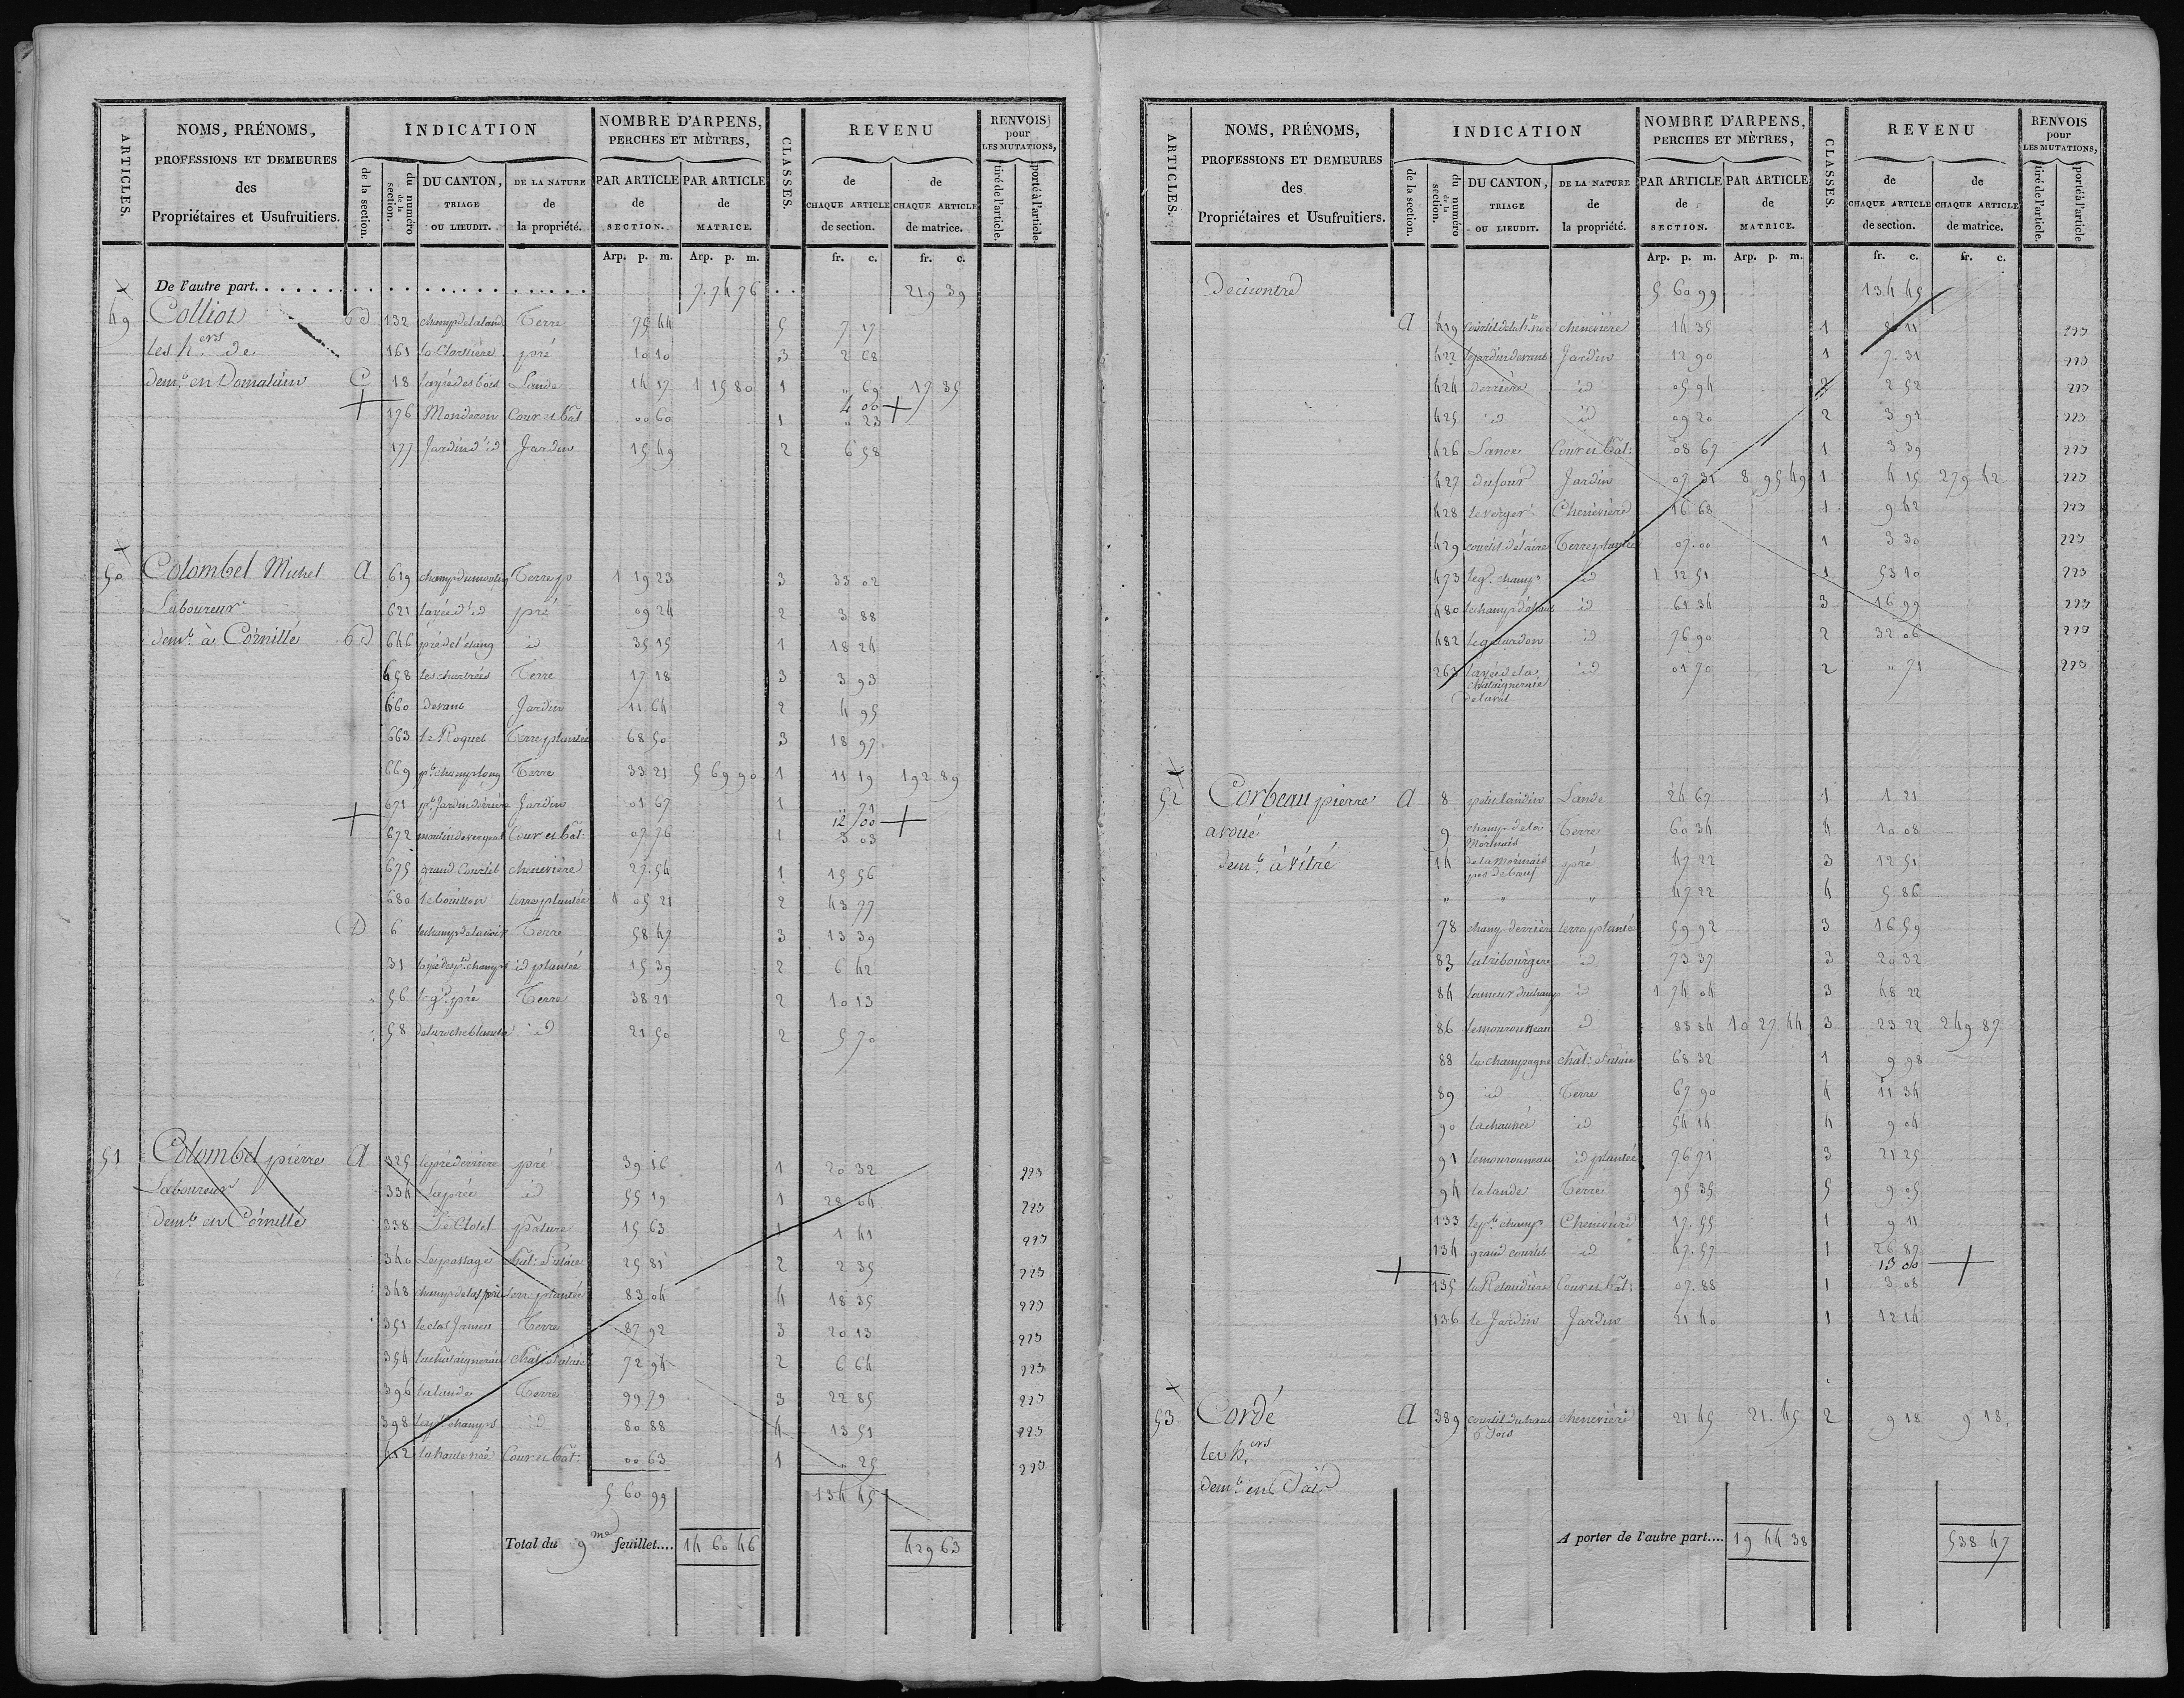 ARTICLES.
NOMS, PRÉNOMS,
PROFESSIONS ET DEMEURES
des
Propriétaires et Usufruitiers.
INDICATION
de la section.
du numéro de la section.
DU CANTON,
TRIAGE
OU LIEUDIT.
DE LA NATURE
de
la propriété.
NOMBRE D'ARPENS,
PERCHES ET MÈTRES,
PAR ARTICLE
de
SECTION.
PAR ARTICLE
de
MATRICE.
CLASSES.
REVENU
de
CHAQUE ARTICLE
de section.
de
CHAQUE ARTICLE
de matrice.
RENVOIS
pour
LES MUTATIONS,
tiré de l'article.
porté à l'article.
Arp. p. m. Arp. p. m. fr. c. fr. c.
De l'autre part. 7.74 76 219 39
49 Colliot 132 champ de la lande Terre 75 44 5 7 17
les h.ers de 161 pré 10 10 3 2 68
dem.t en Domalain C 18 Lande 14 17 1 15 80 1 " 69 17 35
176 Monderon Cour et bât 00 60 1 4 00 " 23
177 Jardin d'id Jardin 15 49 2 6 58
50 Colombel Michel A 619 Terre 1 19 23 3 33 02
Laboureur 621 pré 09 24 2 3 88
dem.t à Cornillé 646 pré de l'étang id 35 15 1 18 24
658 Terre 17 18 3 3 93
660 devant Jardin 11 64 2 4 95
663 le Roquet Terre plantée 68 50 3 18 97
669 p.t champ long Terre 33 21 5 69 90 1 11 19 192 89
671 p.t Jardin derrière Jardin 01 67 1 " 71
672 Cour et bât: 07 76 1 12 00 3 03
675 grand Courtil chenevière 27.54 1 15 56
680 terre plantée 1 05 21 2 43 77
D 6 Terre 58 47 3 13 39
31 id plantée 15 39 2 6 42
56 le g.d pré Terre 38 21 2 10 13
58 id 21 50 2 5 70
51 Colombel pierre A 325 le pré derrière pré 39 16 1 20 32 223
Laboureur 334 La prée id 55 19 1 28 64 223
dem.t en Cornillé 338 Le Clotel pature 15 63 1 1 41 223
340 Le passage chat: futaie 25 81 2 2 35 223
348 terre plantée 83 04 4 18 35 223
351 le clos Terre 87 92 3 20 13 223
354 la chataigneraie chat: futaie 72 94 2 6 64 223
396 la lande Terre 99 79 3 22 85 223
398 id 80 88 4 13 51 223
412 la haute noë Cour et bât: 00 63 1 " 25 223
5 60 99 134 45
Total du 9me feuillet.... 14 60 46 429 63
ARTICLES.
NOMS, PRÉNOMS,
PROFESSIONS ET DEMEURES
des
Propriétaires et Usufruitiers.
INDICATION
de la section.
du numéro de la section.
DU CANTON,
TRIAGE
OU LIEUDIT.
DE LA NATURE
de
la propriété.
NOMBRE D'ARPENS,
PERCHES ET MÈTRES,
PAR ARTICLE
de
SECTION.
PAR ARTICLE
de
MATRICE.
CLASSES.
REVENU
de
CHAQUE ARTICLE
de section.
de
CHAQUE ARTICLE
de matrice.
RENVOIS
pour
LES MUTATIONS,
tiré de l'article.
porté à l'article
Arp. p. m. Arp. p. m. fr. c. fr. c.
De ci contre 5.60 99 134 45
A 419 chenevière 14 35 1 8 11 223
422 le jardin devant Jardin 12 90 1 7.31 223
424 derrière id 05 94 2 2 52 223
425 id id 09 20 2 3 91 223
426 Lanoe Cour et bât: 08 67 1 3 39 223
427 du four Jardin 07 31 8 95 49 1 4 15 279 42 223
428 le verger Chenevière 16 68 1 9 42 223
429 courtil de l'aire Terre plantée 07.00 1 3 30 223
473 le g.d champ id 1 12 51 1 53 10 223
480 id 61 34 3 16 99 223
482 id 76 90 2 32 06 223
263 id 01 70 2 " 71 223
chataigneraie
52 Corbeau pierre A 8 Lande 24 67 1 1 21
avoué 9 champ de la Terre 60 34 4 10 08
dem.t à Vitré 14 pré 47 22 3 12 51
" " " 47 22 4 5.86
78 champ derrière terre plantée 59 92 3 16 59
83 id 73 37 3 20 32
84 id 1 74 04 3 48 22
86 id 83 84 10 27.44 3 23 22 249 87
88 la champagne chat: futaie 68 32 1 9 98
89 id Terre 67 90 4 11 34
90 la chaussée id 54 14 4 9 04
91 id plantée 76 71 3 21 25
94 la lande Terre 95 35 5 9 05
133 le p.t champ Chenevière 17.55 1 9 11
134 grand courtil id 47.57 1 26 87
135 la Relaudière Cour et bât: 07.88 1 13 00 3 08
136 le Jardin Jardin 21 40 1 12 14
53 Cordé A 389 chenevière 21 45 21.45 2 9 18 9 18
les h.ers
dem.t en
A porter de l'autre part.... 19 44 38 538 47